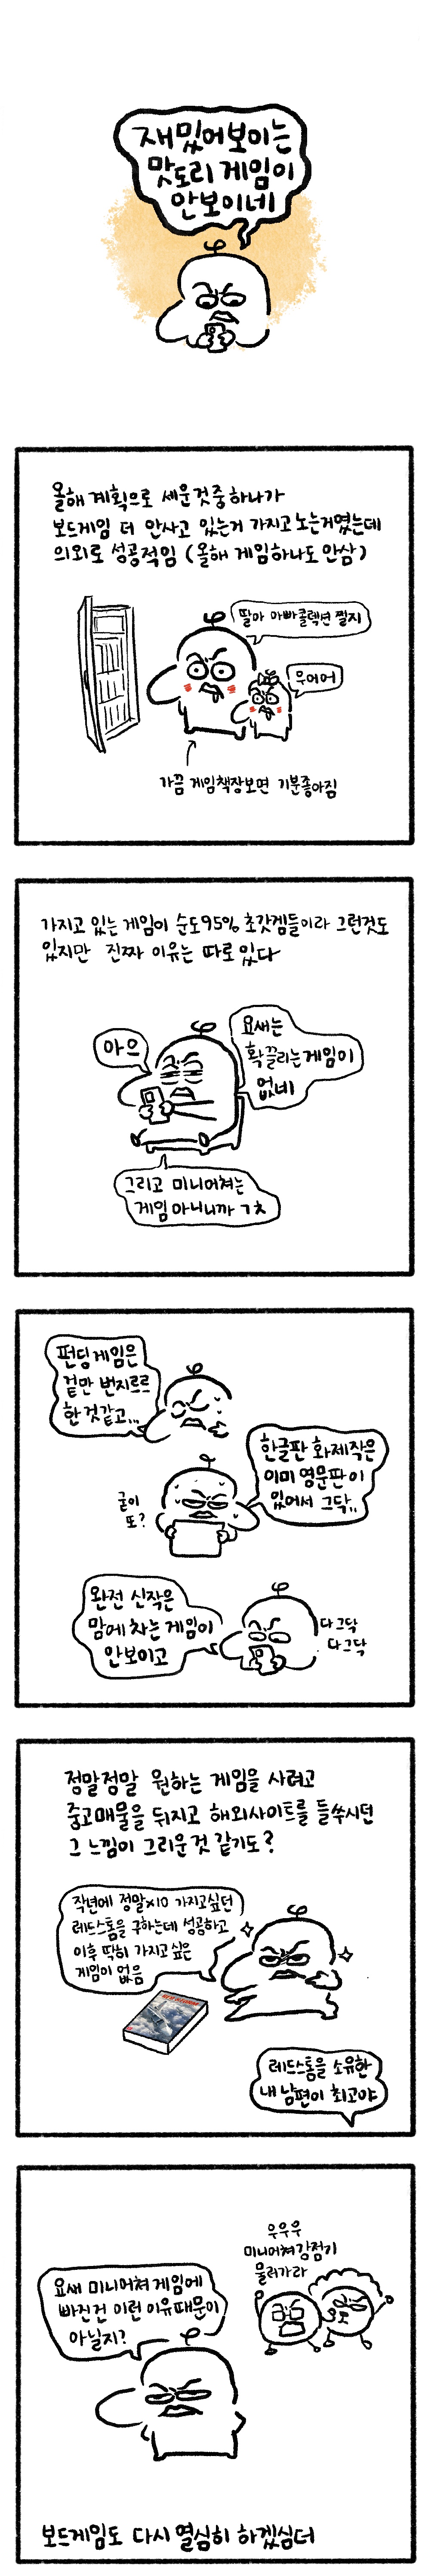 재밌어보이는
맛도리 게임이
안보이네
올해 계획으로 세운것중 하나가
보드게임 더 안사고 있는거 가지고 노는거였는데
의외로 성공적임 (올해 게임하나도 안삼)
딸아 아빠콜렉션 찔지
무어어
가끔 게임책장보면 기분좋아짐
가지고 있는 게임이 순도95% 초갓겜들이라 그런것도
있지만 진짜 이유는 따로 있다
아으
요새는
확끌리는게임이
없네
그리고 미니어쳐는
게임 아니니까 ㄱㅊ
펀딩게임은
겉만 번지르르
한 것같고...
굳이
또?
한글판 화제작은
이미 영문판이
있어서 그닥..
완전 신작은
맘에 차는 게임이
안보이고
다그닥
다그닥
정말정말 원하는 게임을 사려고
중고매물을 뒤지고 해외사이트를 들쑤시던
그 느낌이 그리운것 같기도?
작년에 정말x10 가지고싶던
레드스톰을 구하는데 성공하고
이후 딱히 가지고 싶은
게임이 없음
레드스톰을 소유한
내 남편이 최고야
우우우
미니어쳐강점기
물러가라
요새 미니어쳐 게임에
빠진건 이런 이유때문이
아닐지?
보드게임도 다시 열심히 하겠심더